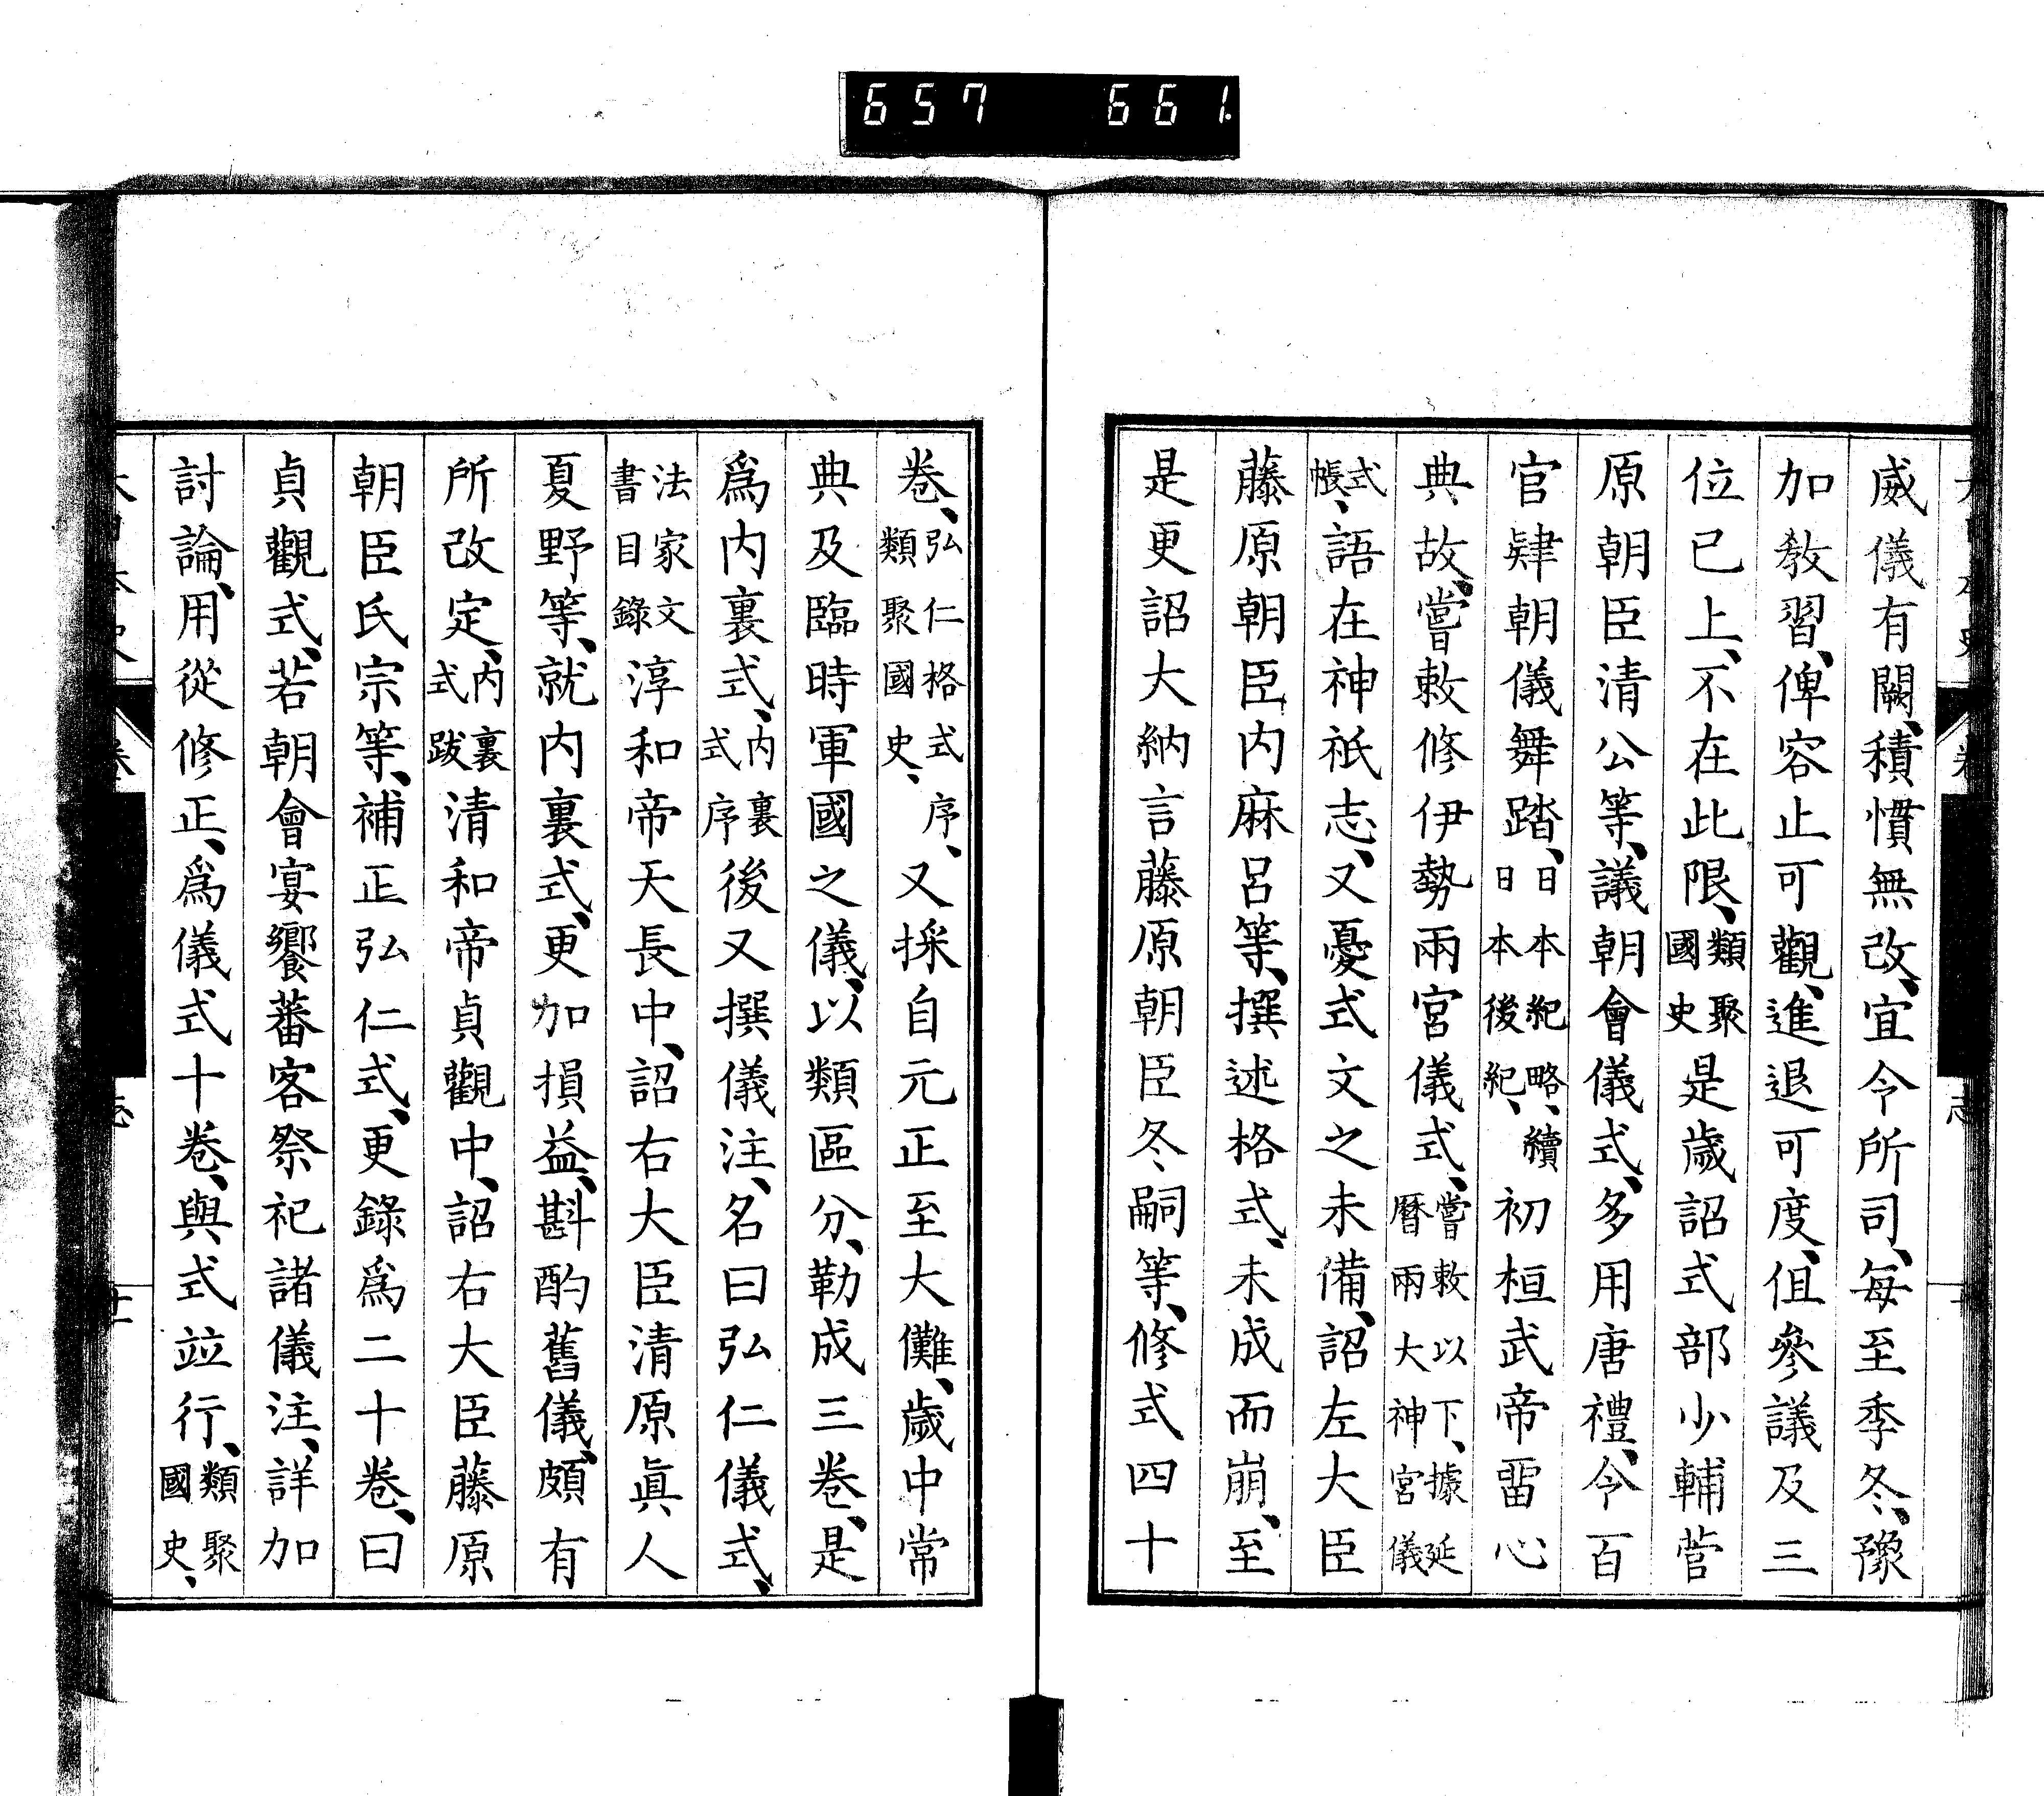 657 661
威儀有闕、積慣無改、宜令所司、每至季冬、豫
加教習、俾容止可觀、進退可度、但參議及三
位已上、不在此限、類聚國史是歲詔式部少輔菅
原朝臣清公等、議朝會儀式、多用唐禮、令百
官肄朝儀舞踏、日本紀略、續日本後紀、初桓武帝畱心
典故、嘗敕修伊勢兩宮儀式、嘗敕以下、據延曆兩大神宮儀
式帳、語在神祇志、又憂式文之未備、詔左大臣
藤原朝臣内麻呂等、撰述格式、未成而崩、至
是更詔大納言藤原朝臣冬嗣等、修式四十
卷、弘仁格式序、類聚國史、又採自元正至大儺、歲中常
典及臨時軍國之儀、以類區分、勒成三卷、是
爲内裏式、内裏式序後又撰儀注、名曰弘仁儀式、
法家文書目錄淳和帝天長中、詔右大臣清原眞人
夏野等、就内裏式、更加損益、斟酌舊儀、頗有
所改定、内裏式跋清和帝貞觀中、詔右大臣藤原
朝臣氏宗等、補正弘仁式、更錄爲二十卷、曰
貞觀式、若朝會宴饗蕃客祭祀諸儀注、詳加
討論、用從修正、爲儀式十卷、與式竝行、類聚國史、